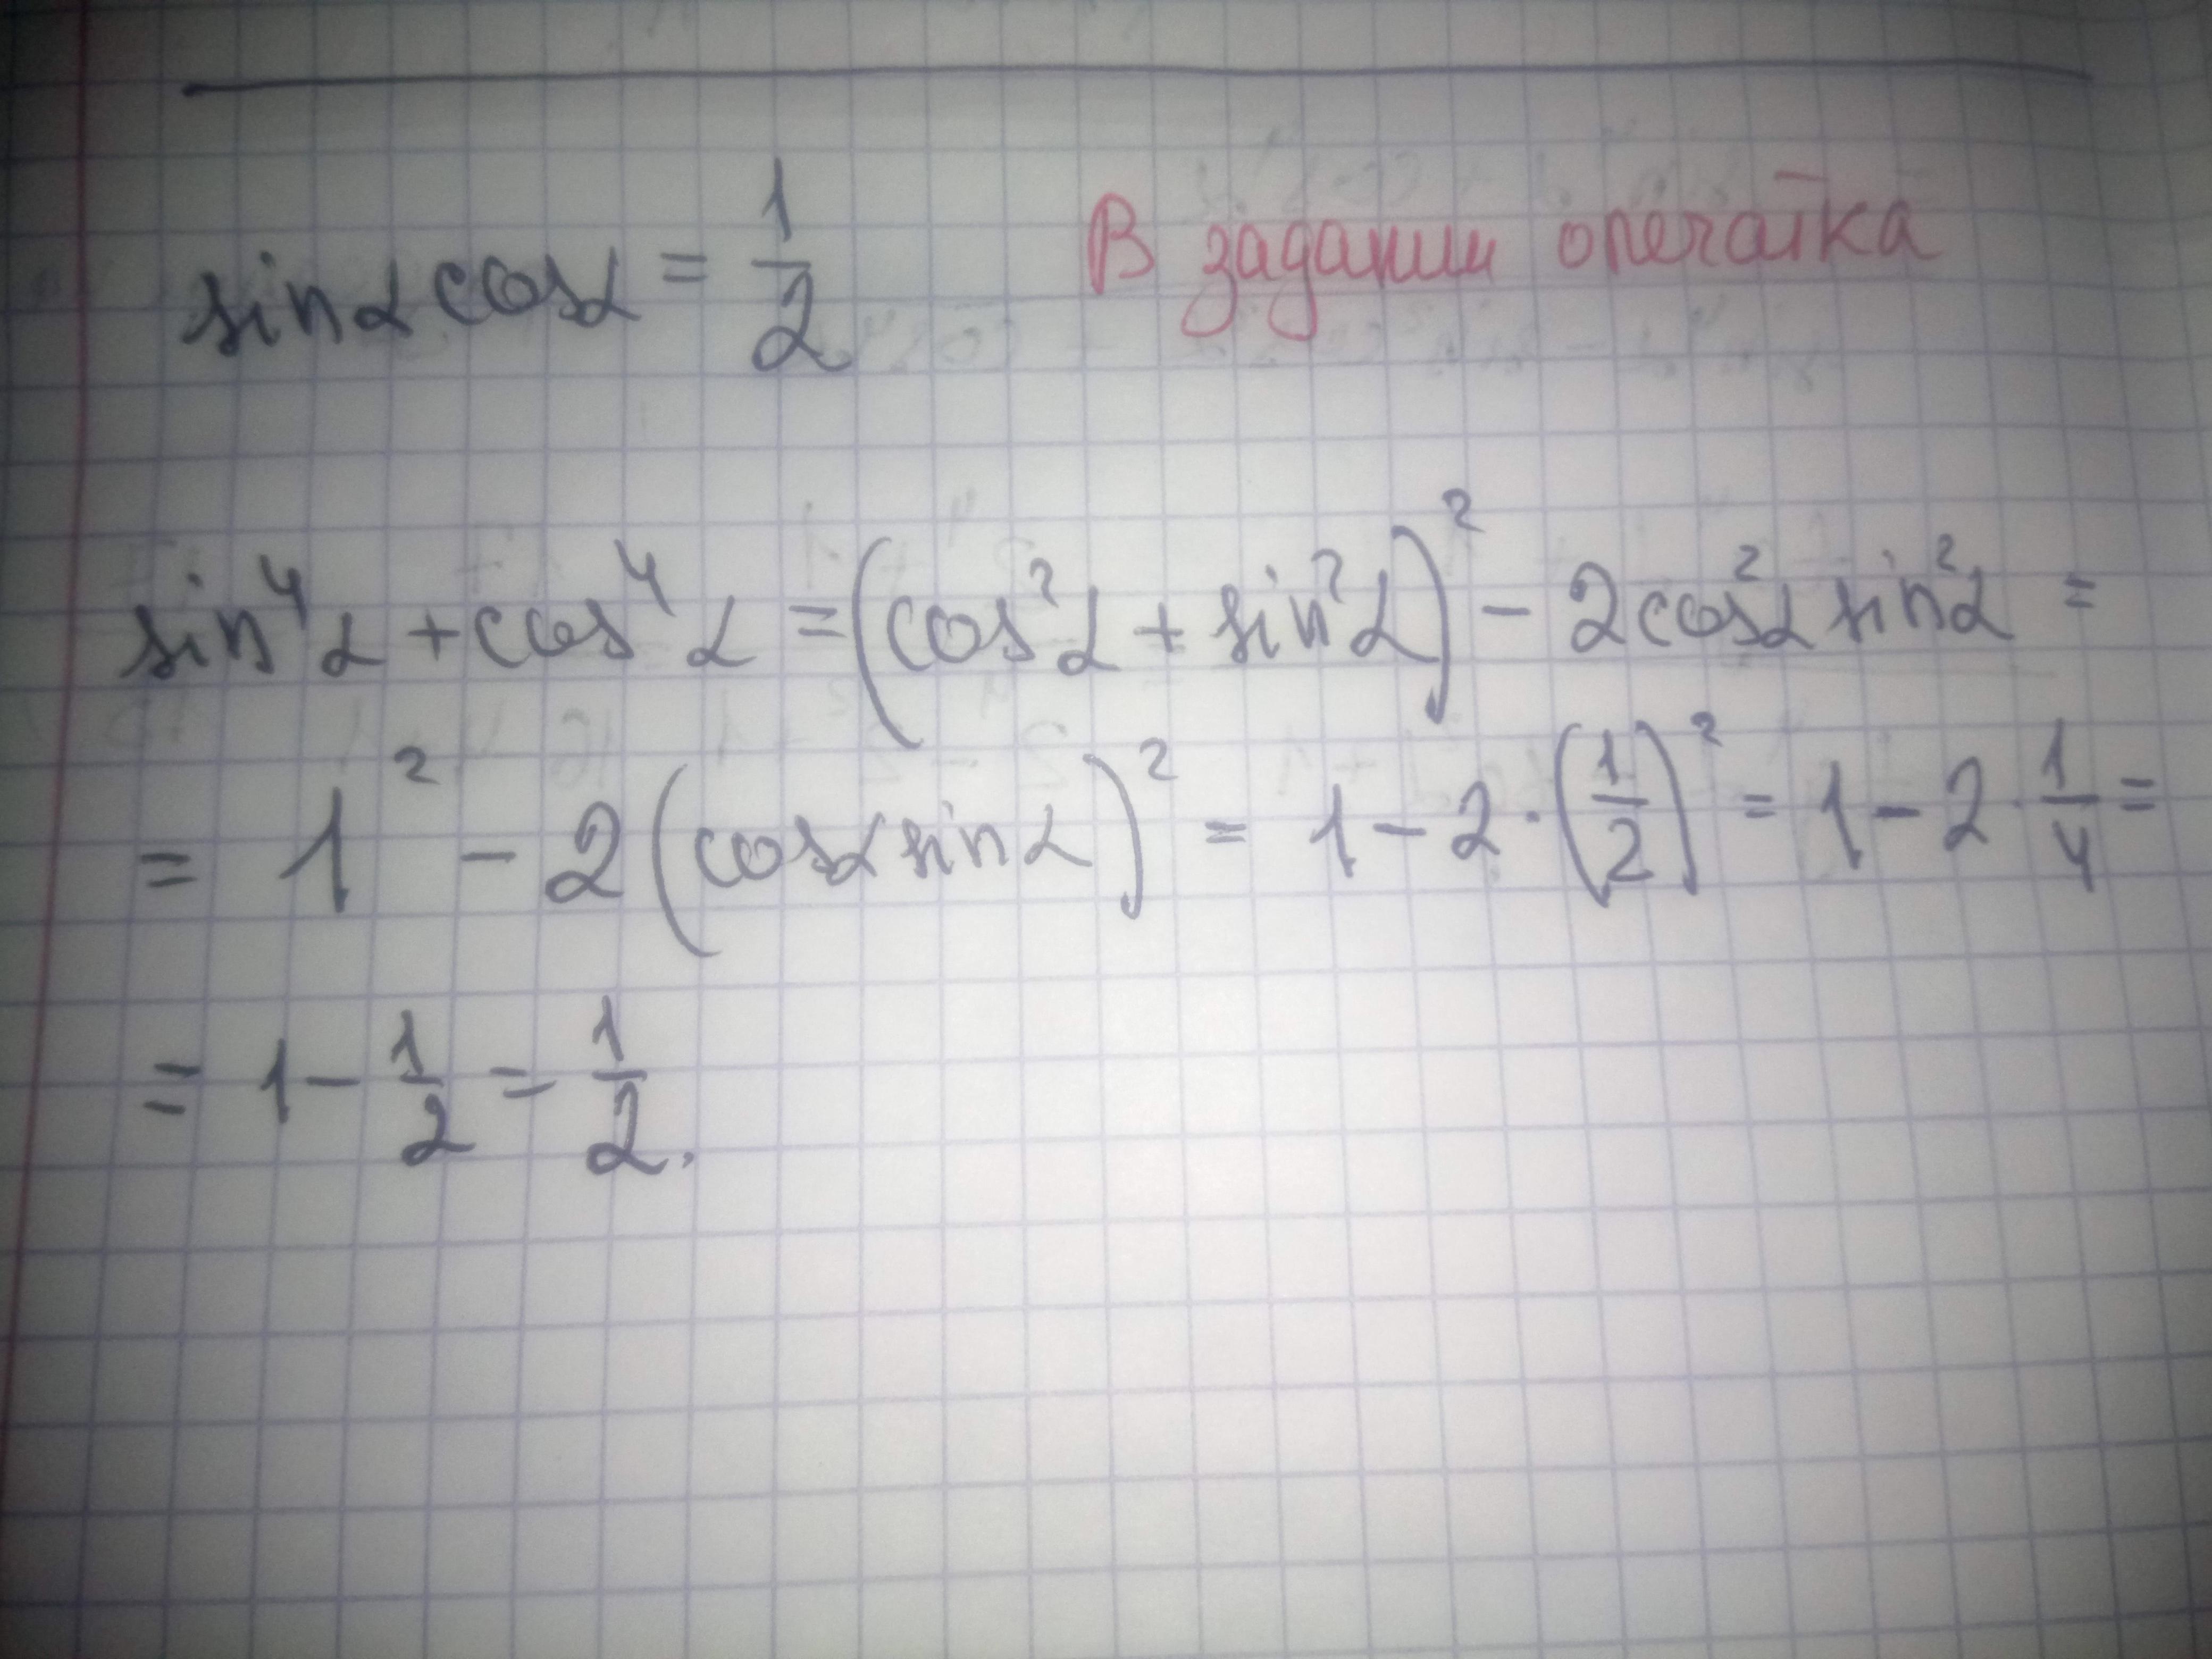 sinαcosα = 1/2 В задании опечатка
sin⁴α + cos⁴α = (cos²α + sin²α)² - 2cos²α sin²α =
= 1² - 2(cosα sinα)² = 1 - 2 · (1/2)² = 1 - 2 · 1/4 =
= 1 - 1/2 = 1/2.